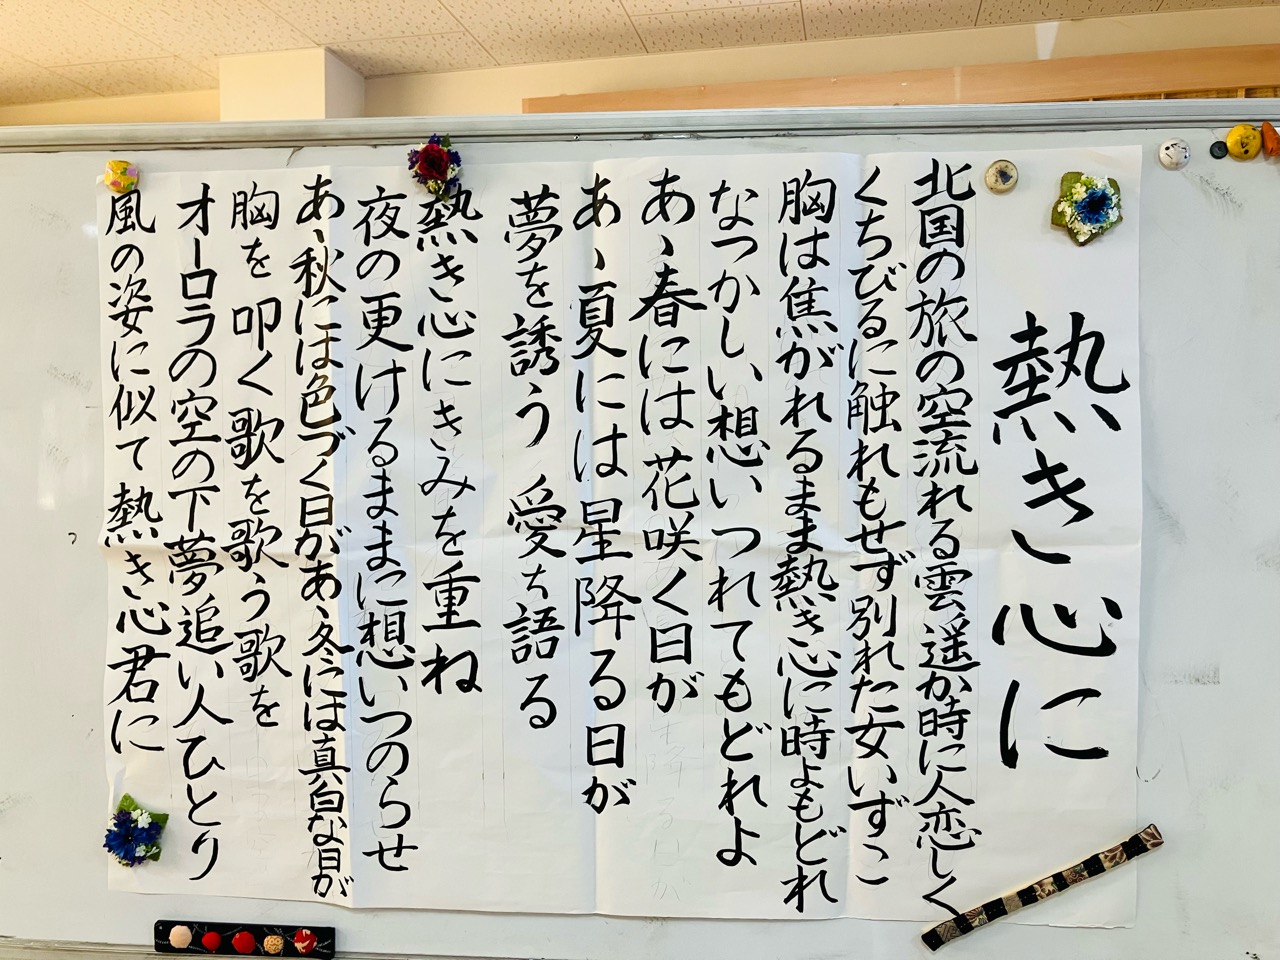 熱き心に
北国の旅の空流れる雲遥か時に人恋しく
くちびるに触れもせず別れた女いずこ
胸は焦がれるまま熱き心に時よもどれ
なつかしい想いつれてもどれよ
あゝ春には花咲く日が
あゝ夏には星降る日が
夢を誘う 愛を語る
熱き心にきみを重ね
夜の更けるままに想いつのらせ
あゝ秋には色づく日があゝ冬には真白な日が
胸を叩く歌を歌う歌を
オーロラの空の下夢追い人ひとり
風の姿に似て熱き心君に